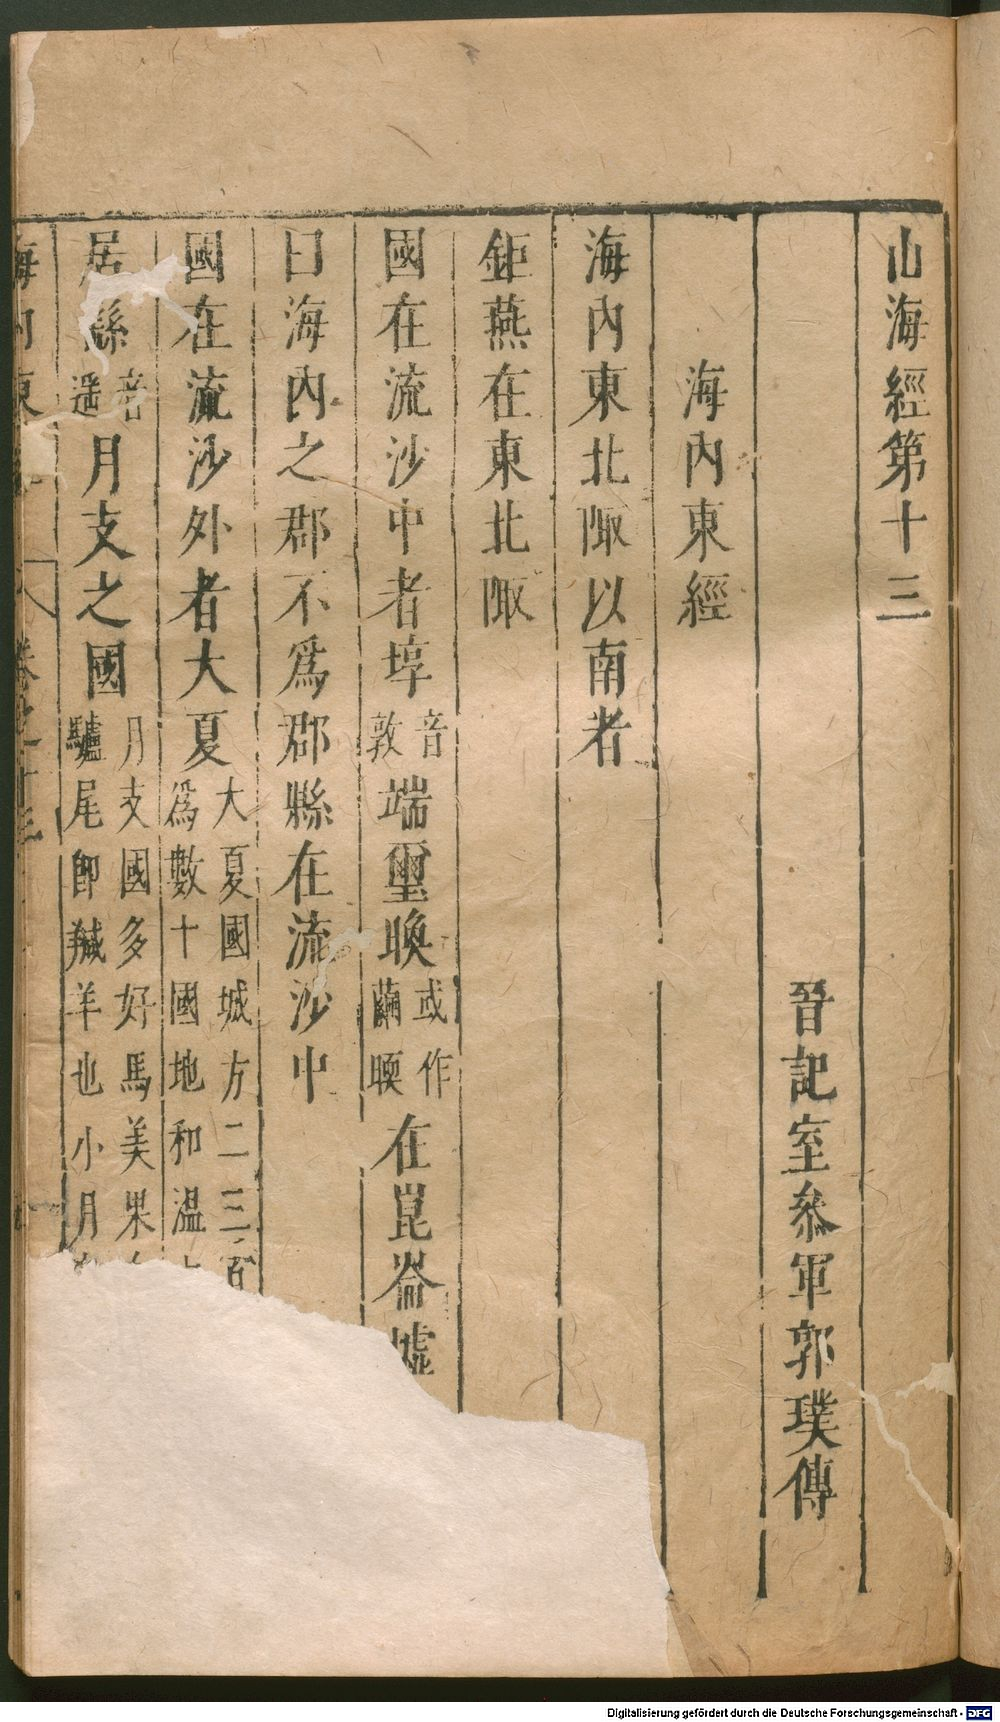 山海經第十三
晉記室參軍郭璞傳
海內東經
海內東北陬以南者
鉅燕在東北陬
國在流沙中者埻音敦端璽㬇或作繭暯在崑崙墟
曰海內之郡不爲郡縣在流沙中
國在流沙外者大夏大夏國城方二三百爲數十國地和溫
居繇音遥月支之國月支國多好馬美果驢尾卽羬羊也小月
海內東 卷之十三
Digitalisierung gefördert durch die Deutsche Forschungsgemeinschaft - DFG